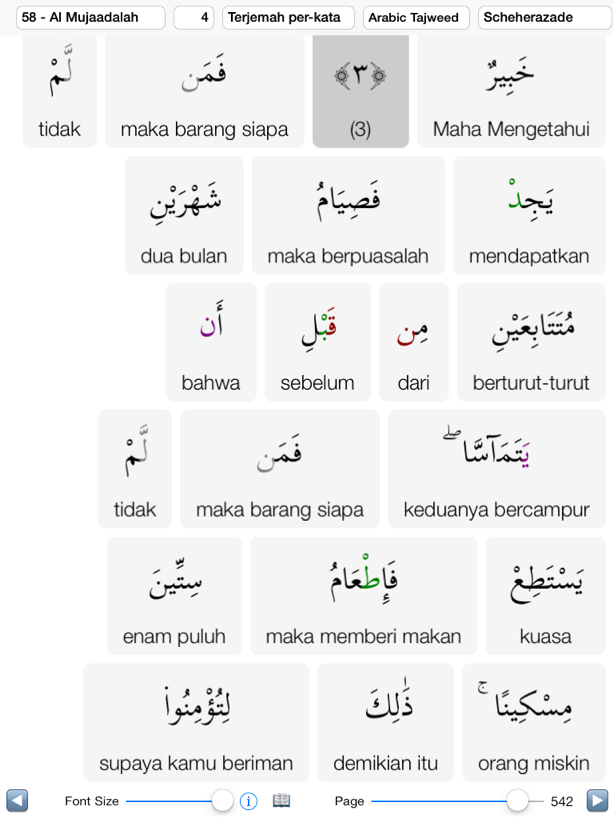 58 - Al Mujaadalah 4 Terjemah per-kata Arabic Tajweed Scheherazade
خَبِيرٌ ﴿٣﴾ فَمَن لَّمْ
Maha Mengetahui (3) maka barang siapa tidak
يَجِدْ فَصِيَامُ شَهْرَيْنِ
mendapatkan maka berpuasalah dua bulan
مُتَتَابِعَيْنِ مِن قَبْلِ أَن
berturut-turut dari sebelum bahwa
يَتَمَآسَّا ۖ فَمَن لَّمْ
keduanya bercampur maka barang siapa tidak
يَسْتَطِعْ فَإِطْعَامُ سِتِّينَ
kuasa maka memberi makan enam puluh
مِسْكِينًا ۚ ذَٰلِكَ لِتُؤْمِنُوا۟
orang miskin demikian itu supaya kamu beriman
Font Size Page 542